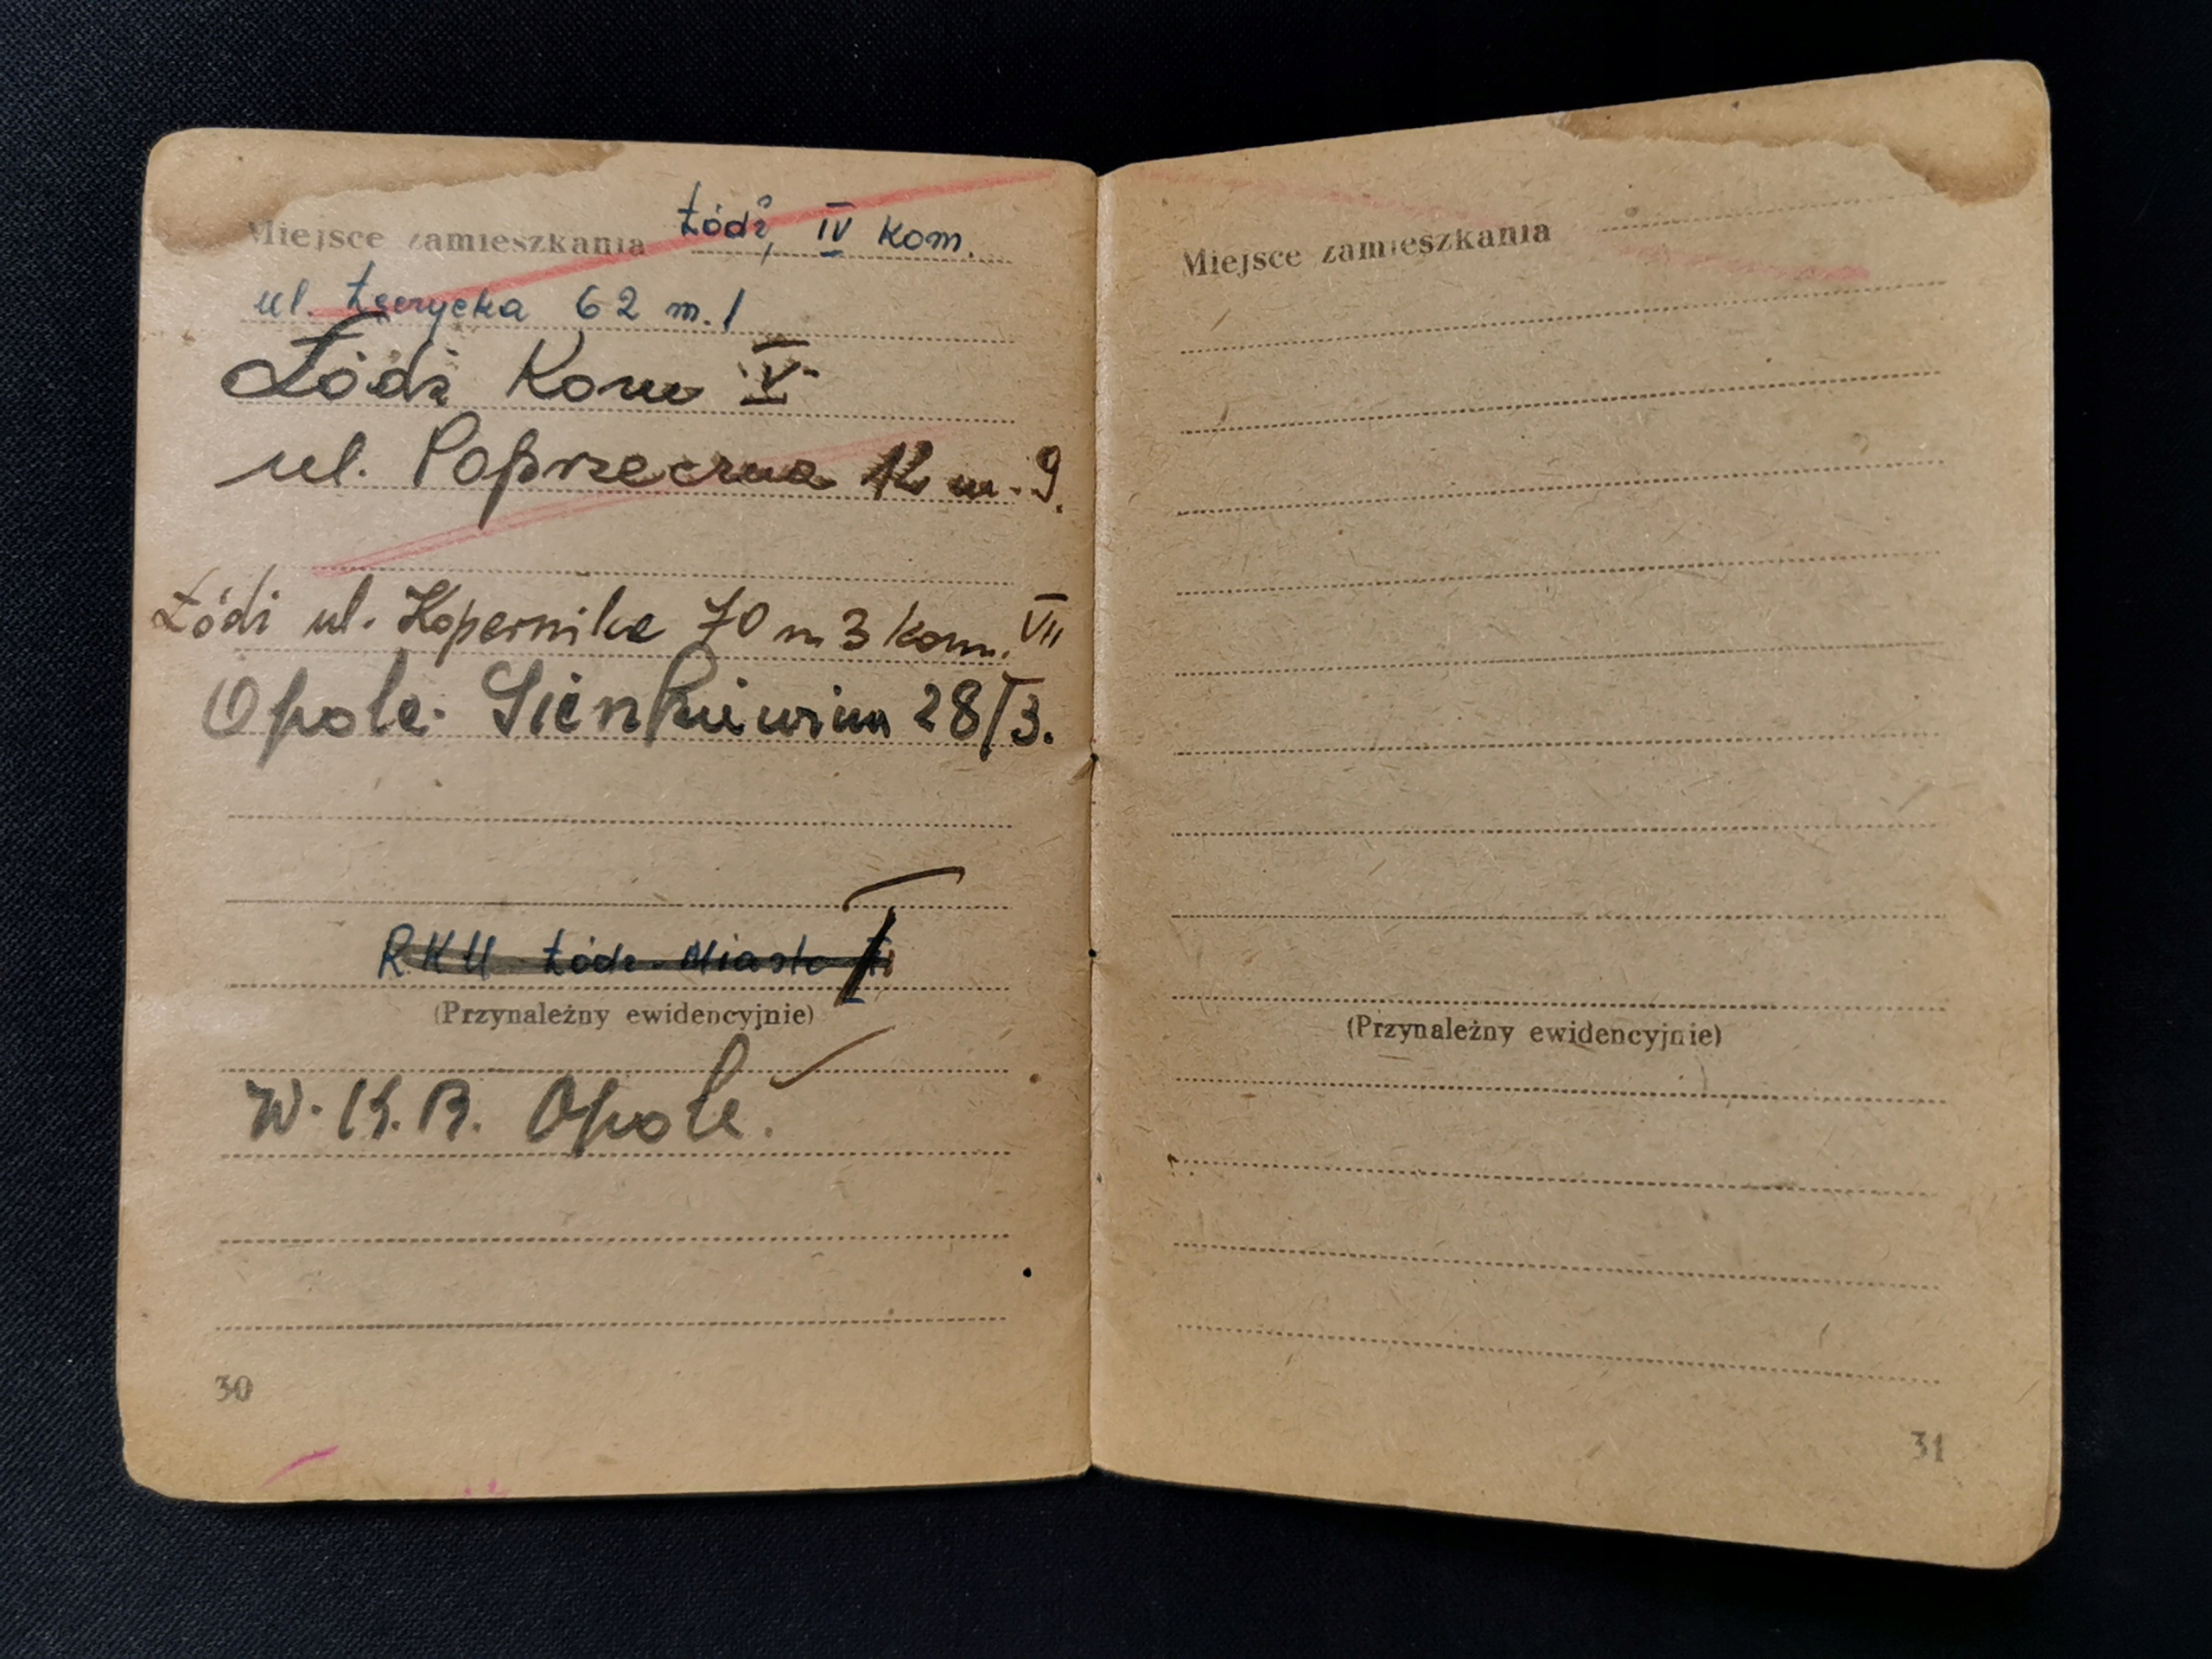 Miejsce zamieszkania Łódź, IV kom.
ul. Łęczycka 62 m. 1
Łódź Kom V
ul. Poprzeczna 12 m. 9.
Łódź ul. Kopernika 70 m 3 kom. VII
Opole. Sienkiewicza 28/3.
R.K.U. Łódź-Miasto I
(Przynależny ewidencyjnie)
W.K.R. Opole.
30
Miejsce zamieszkania
(Przynależny ewidencyjnie)
31